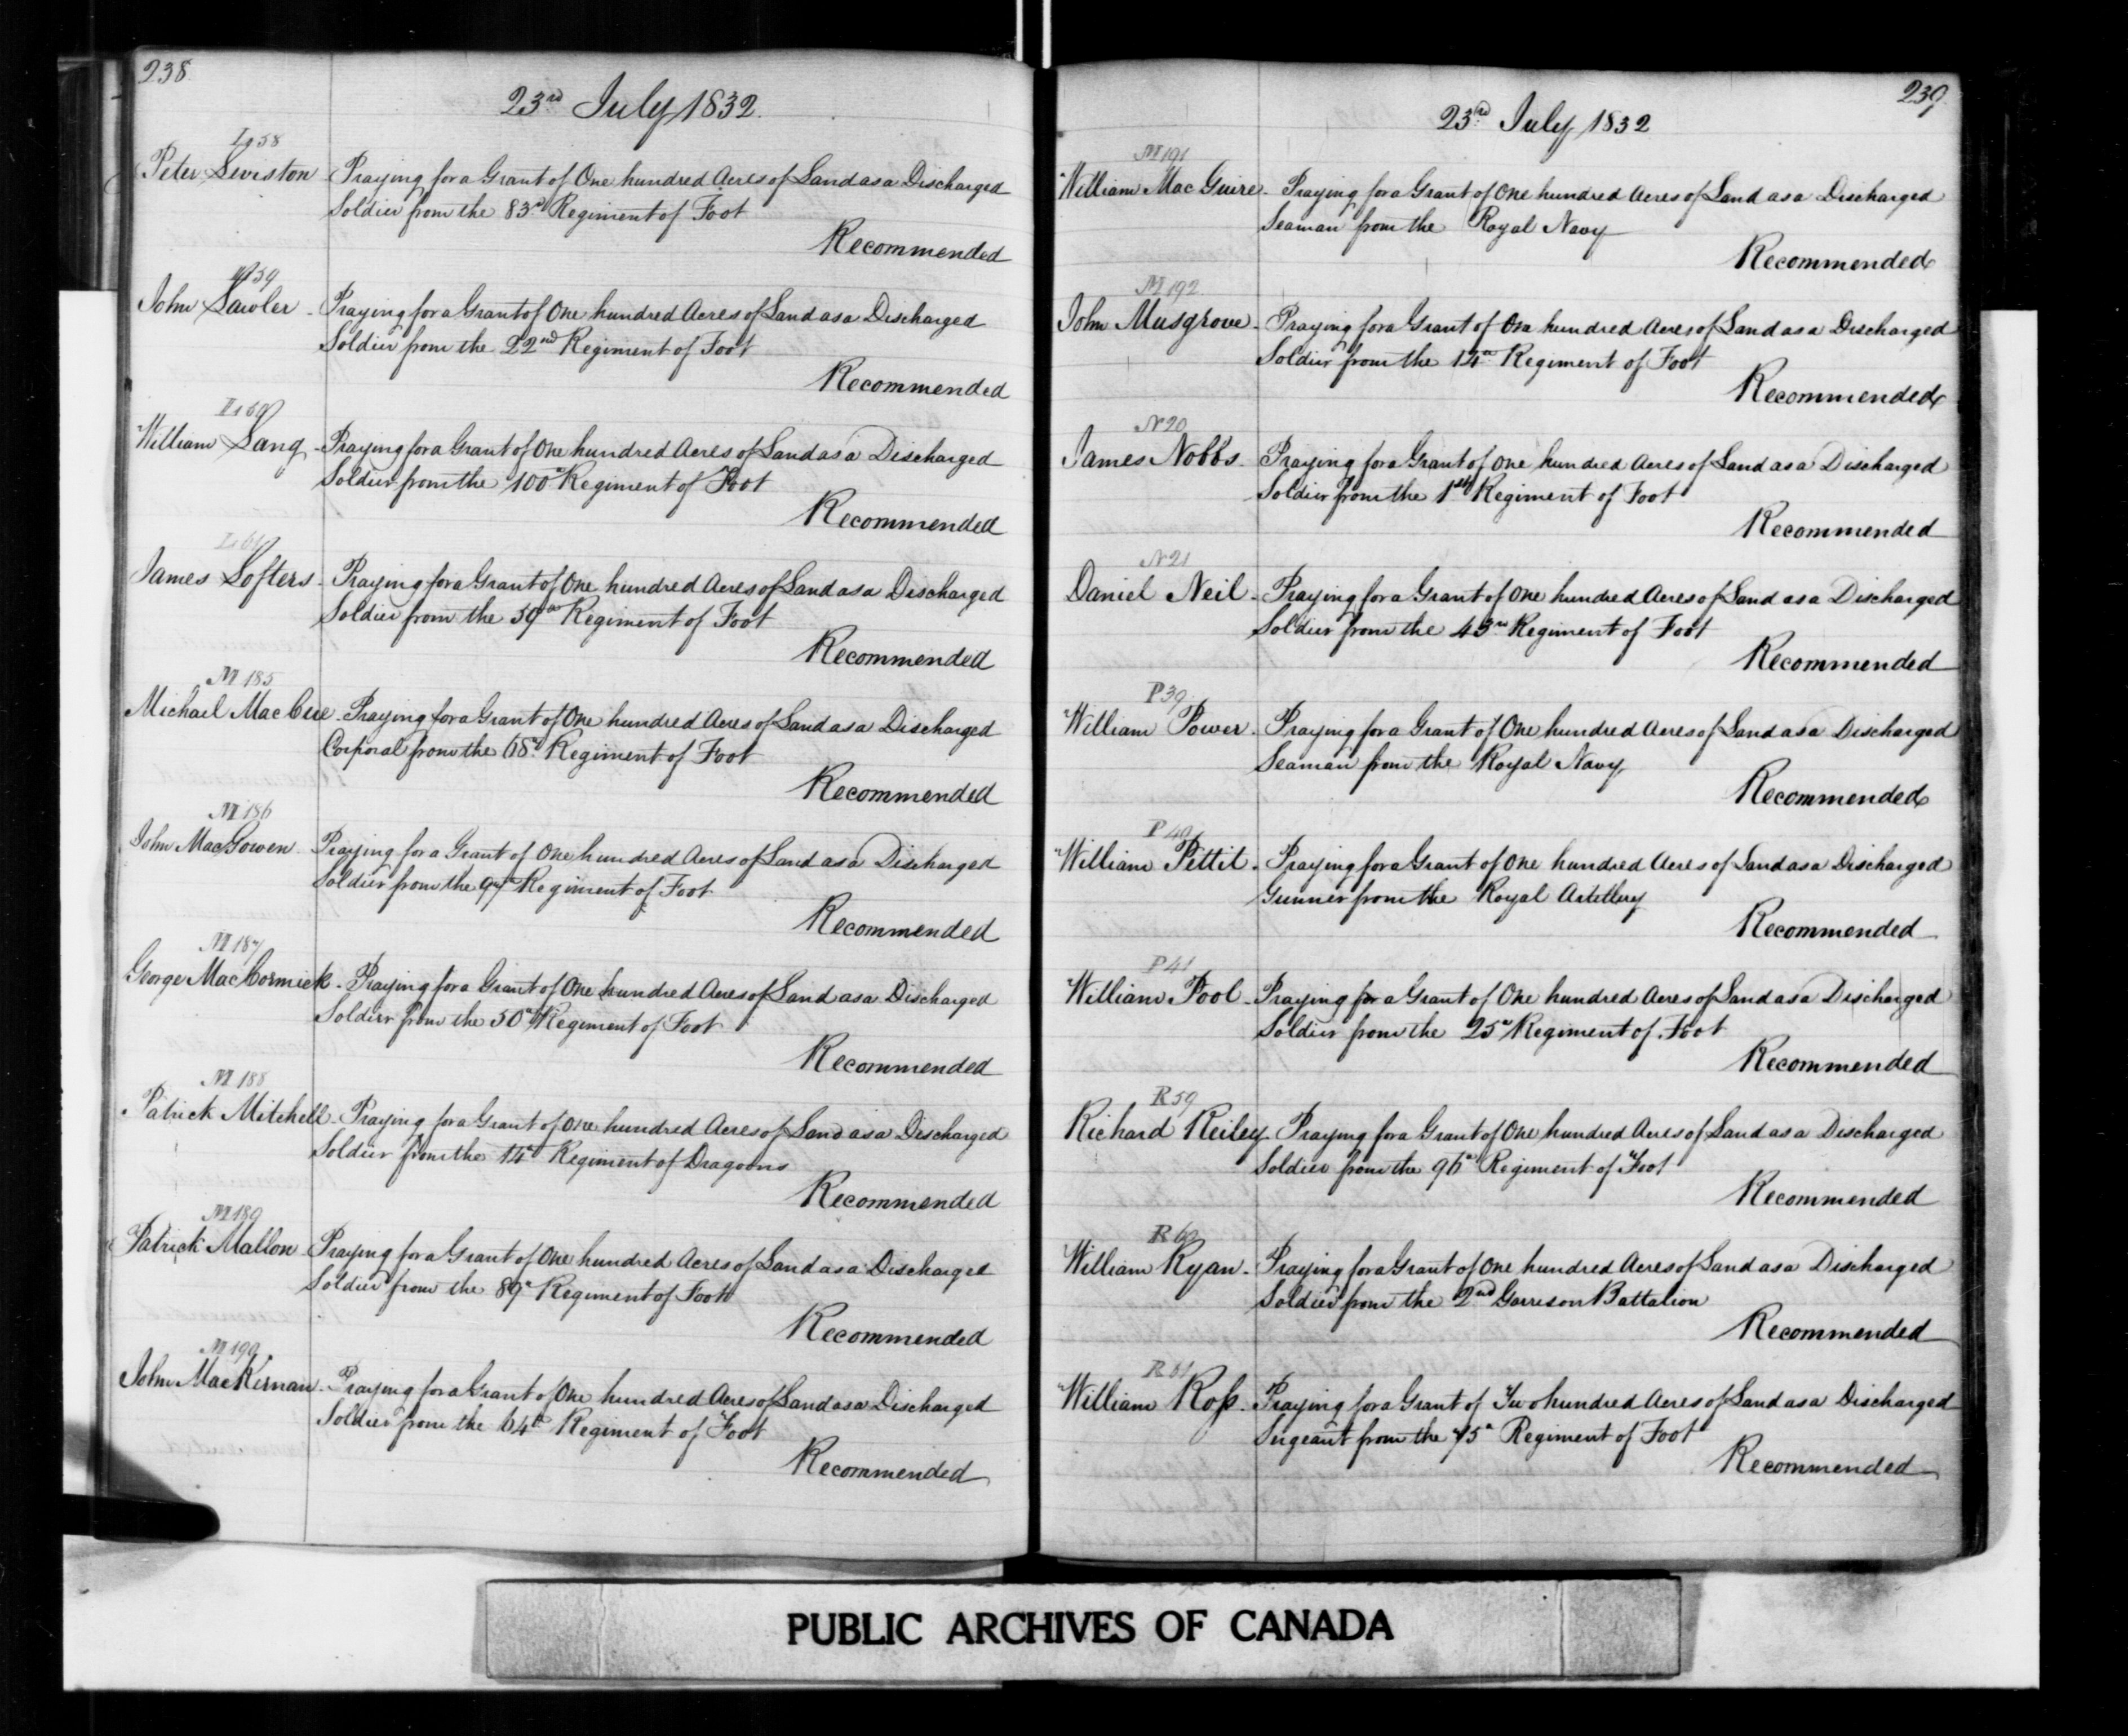 238
23rd July 1832.
L 58
Peter Leviston - Praying for a Grant of One hundred Acres of Land as a Discharged
Soldier from the 83rd Regiment of Foot
Recommended
59
John Lawler - Praying for a Grant of One hundred Acres of Land as a Discharged
Soldier from the 22nd Regiment of Foot
Recommended
L 60
William Lang - Praying for a Grant of One hundred Acres of Land as a Discharged
Soldier from the 100th Regiment of Foot
Recommended
L 61
James Lofters - Praying for a Grant of One hundred Acres of Land as a Discharged
Soldier from the 59th Regiment of Foot
Recommended
M 185
Michael MacCue - Praying for a Grant of One hundred Acres of Land as a Discharged
Corporal from the 68th Regiment of Foot
Recommended
M 186
John MacGowen Praying for a Grant of One hundred Acres of Land as a Discharged
Soldier from the 97th Regiment of Foot
Recommended
M 187
George MacCormick - Praying for a Grant of One hundred Acres of Land as a Discharged
Soldier from the 50th Regiment of Foot
Recommended
M 188
Patrick Mitchell - Praying for a Grant of One hundred Acres of Land as a Discharged
Soldier from the 14th Regiment of Dragoons
Recommended
M 189
Patrick Mallon - Praying for a Grant of One hundred Acres of Land as a Discharged
Soldier from the 89th Regiment of Foot
Recommended
M 190
John MacKernan - Praying for a Grant of One hundred Acres of Land as a Discharged
Soldier from the 64th Regiment of Foot
Recommended
239
23rd July 1832
M 191
William MacGuire - Praying for a Grant of One hundred Acres of Land as a Discharged
Seaman from the Royal Navy
Recommended
M 192
John Musgrove - Praying for a Grant of One hundred Acres of Land as a Discharged
Soldier from the 14th Regiment of Foot
Recommended
N 20
James Nobbs - Praying for a Grant of One hundred Acres of Land as a Discharged
Soldier from the 1st Regiment of Foot
Recommended
N 21
Daniel Neil - Praying for a Grant of One hundred Acres of Land as a Discharged
Soldier from the 43rd Regiment of Foot
Recommended
P 39
William Power - Praying for a Grant of One hundred Acres of Land as a Discharged
Seaman from the Royal Navy
Recommended
P 40
William Pettit - Praying for a Grant of One hundred Acres of Land as a Discharged
Gunner from the Royal Artillery
Recommended
P 41
William Pool - Praying for a Grant of One hundred Acres of Land as a Discharged
Soldier from the 25th Regiment of Foot
Recommended
R 59
Richard Reiley Praying for a Grant of One hundred Acres of Land as a Discharged
Soldier from the 96th Regiment of Foot
Recommended
R 60
William Ryan - Praying for a Grant of One hundred Acres of Land as a Discharged
Soldier from the 2nd Garreson Battalion
Recommended
R 61
William Ross - Praying for a Grant of Two hundred Acres of Land as a Discharged
Sergeant from the 75th Regiment of Foot
Recommended
PUBLIC ARCHIVES OF CANADA